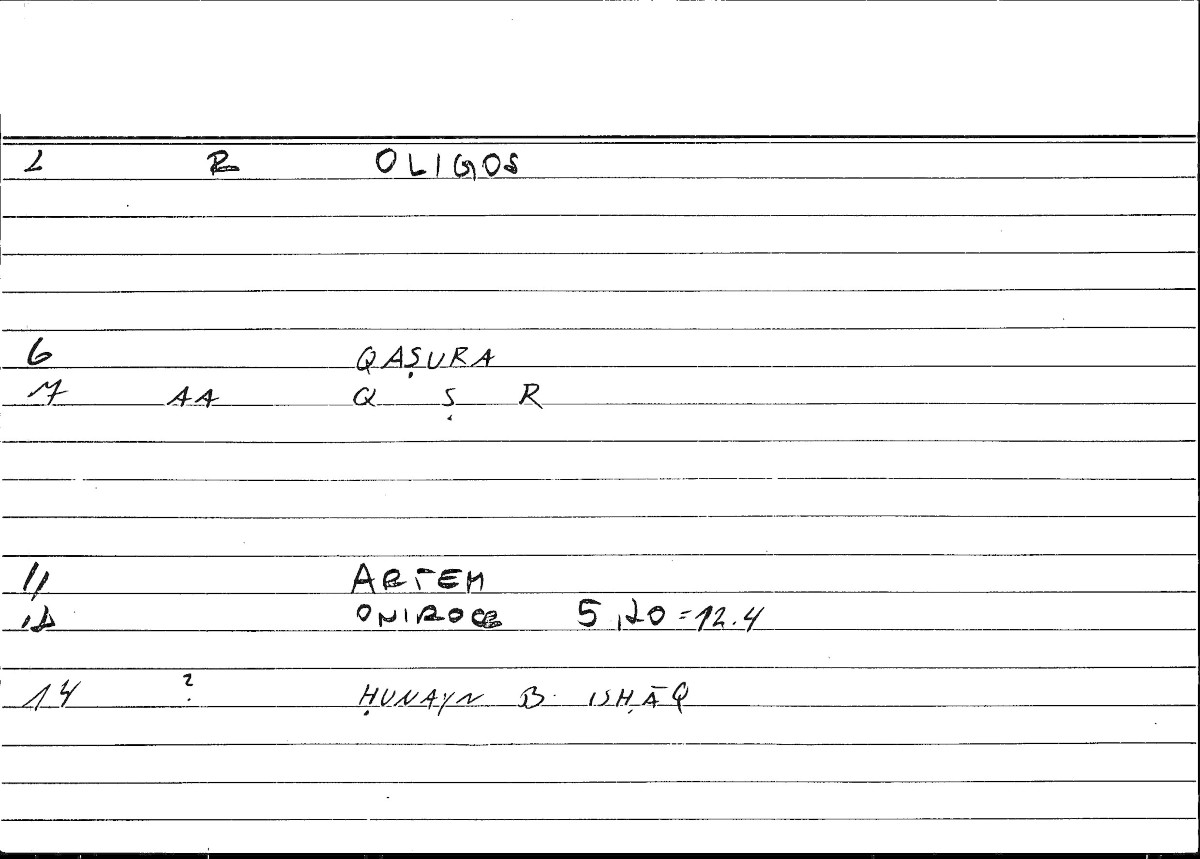 2 R OLIGOS
6 QAṢURA
7 AA Q Ṣ R
11 ARTEM
12 ONIROCR 5,20=12.4
14 ? ḤUNAYN B. ISḤĀQ